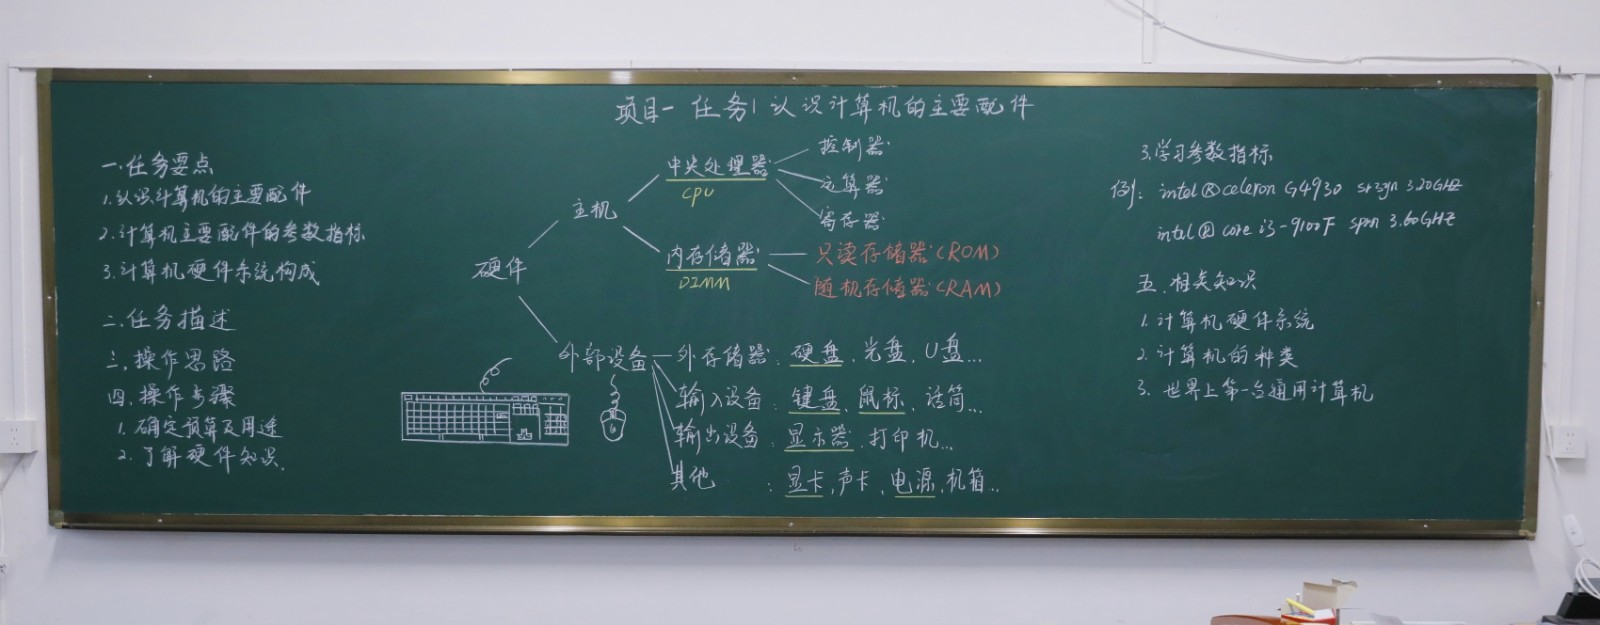 项目一 任务1 认识计算机的主要配件
一.任务要点
1.认识计算机的主要配件
2.计算机主要配件的参数指标
3.计算机硬件系统构成
二.任务描述
三.操作思路
四.操作步骤
1.确定预算及用途
2.了解硬件知识.
硬件
主机
中央处理器
CPU
控制器
运算器
寄存器
内存储器
DIMM
只读存储器(ROM)
随机存储器(RAM)
外部设备
外存储器:硬盘、光盘、U盘...
输入设备:键盘、鼠标、话筒...
输出设备:显示器、打印机...
其他:显卡,声卡、电源,机箱...
3.学习参数指标
例: intel®celeron G4930 3.20GHz
intel®core i3-9100F 3.60GHz
五.相关知识
1.计算机硬件系统
2.计算机的种类
3.世界上第一台通用计算机